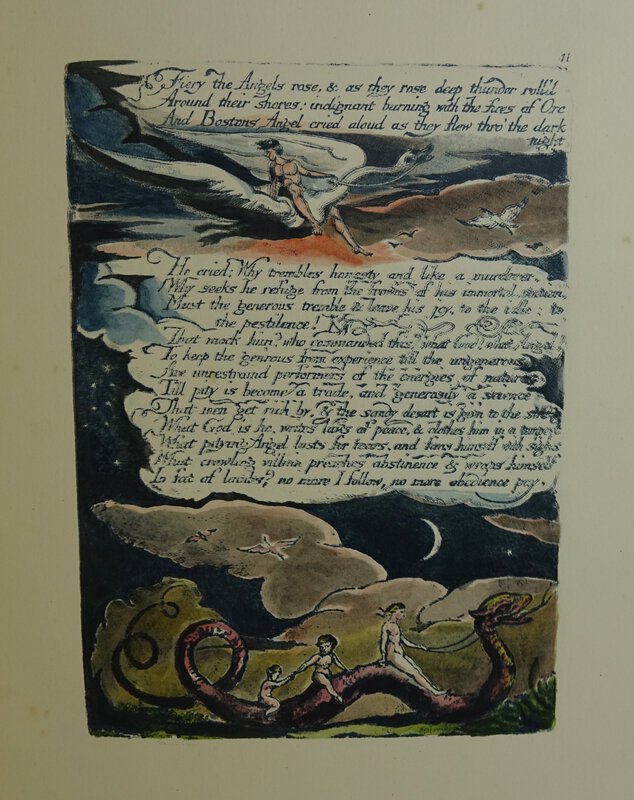 11
Fiery the Angels rose, & as they rose deep thunder roll'd
Around their shores: indignant burning with the fires of Orc
And Bostons Angel cried aloud as they flew thro' the dark
night.
He cried: Why trembles honesty and like a murderer,
Why seeks he refuge from the frowns of his immortal station!
Must the generous tremble & leave his joy, to the idle: to
the pestilence!
That mock him? who commanded this, what God? what Angel!
To keep the gen'rous from experience till the ungenerous
Are unrestraind performers of the energies of nature;
Till pity is become a trade, and generosity a science
That men get rich by, & the sandy desart is giv'n to the strong
What God is he, writes laws of peace, & clothes him in a tempest
What pitying Angel lusts for tears, and fans himself with sighs
What crawling villain preaches abstinence & wraps himself
In fat of lambs? no more I follow, no more obedience pay.